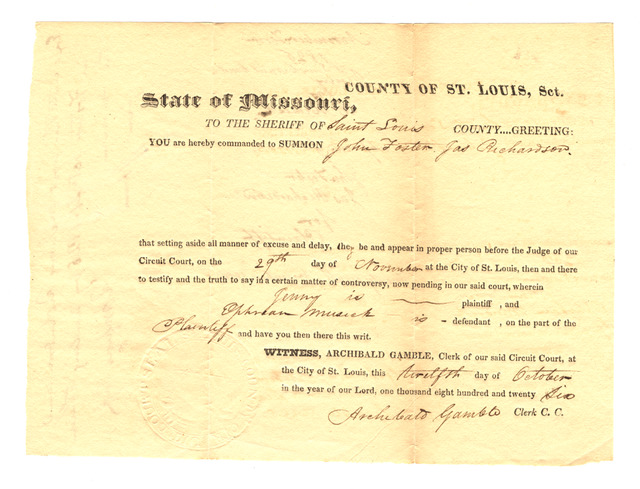 COUNTY OF ST. LOUIS, Sct.
State of Missouri,
TO THE SHERIFF OF Saint Louis COUNTY....GREETING:
YOU are hereby commanded to SUMMON John Foster Jas Richardson.
that setting aside all manner of excuse and delay, they be and appear in proper person before the Judge of our
Circuit Court, on the 29th day of November at the City of St. Louis, then and there
to testify and the truth to say in a certain matter of controversy, now pending in our said court, wherein
Jenny is plaintiff, and
Ephraim Musick is defendant, on the part of the
Plaintiff and have you then there this writ.
WITNESS, ARCHIBALD GAMBLE, Clerk of our said Circuit Court, at
the City of St. Louis, this twelfth day of October
in the year of our Lord, one thousand eight hundred and twenty Six
Archibald Gamble Clerk C. C.